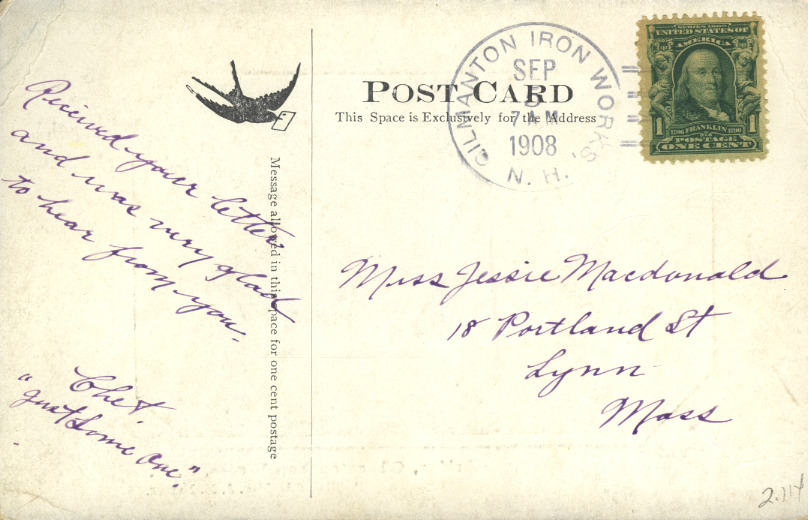 Received your letter
and was very glad
to hear from you.
Chet.
"Just Some One."
Message allowed in this space for one cent postage
POST CARD
This Space is Exclusively for the Address
GILMANTON IRON WORKS,
SEP
7 AM
1908
N. H.
SERIES 1902
UNITED STATES OF
AMERICA
1 FRANKLIN 1
POSTAGE
ONE CENT
Miss Jessie Macdonald
18 Portland St
Lynn
Mass